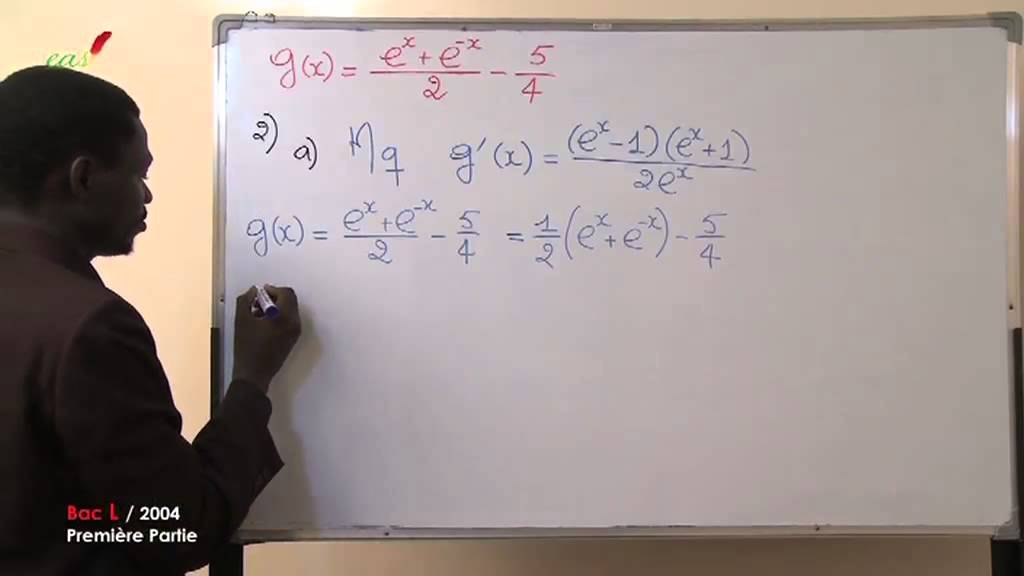 eas
g(x) = (e^x + e^-x)/2 - 5/4
2) a) Mq g'(x) = (e^x - 1)(e^x + 1)/2e^x
g(x) = (e^x + e^-x)/2 - 5/4 = 1/2 (e^x + e^-x) - 5/4
Bac L / 2004
Première Partie